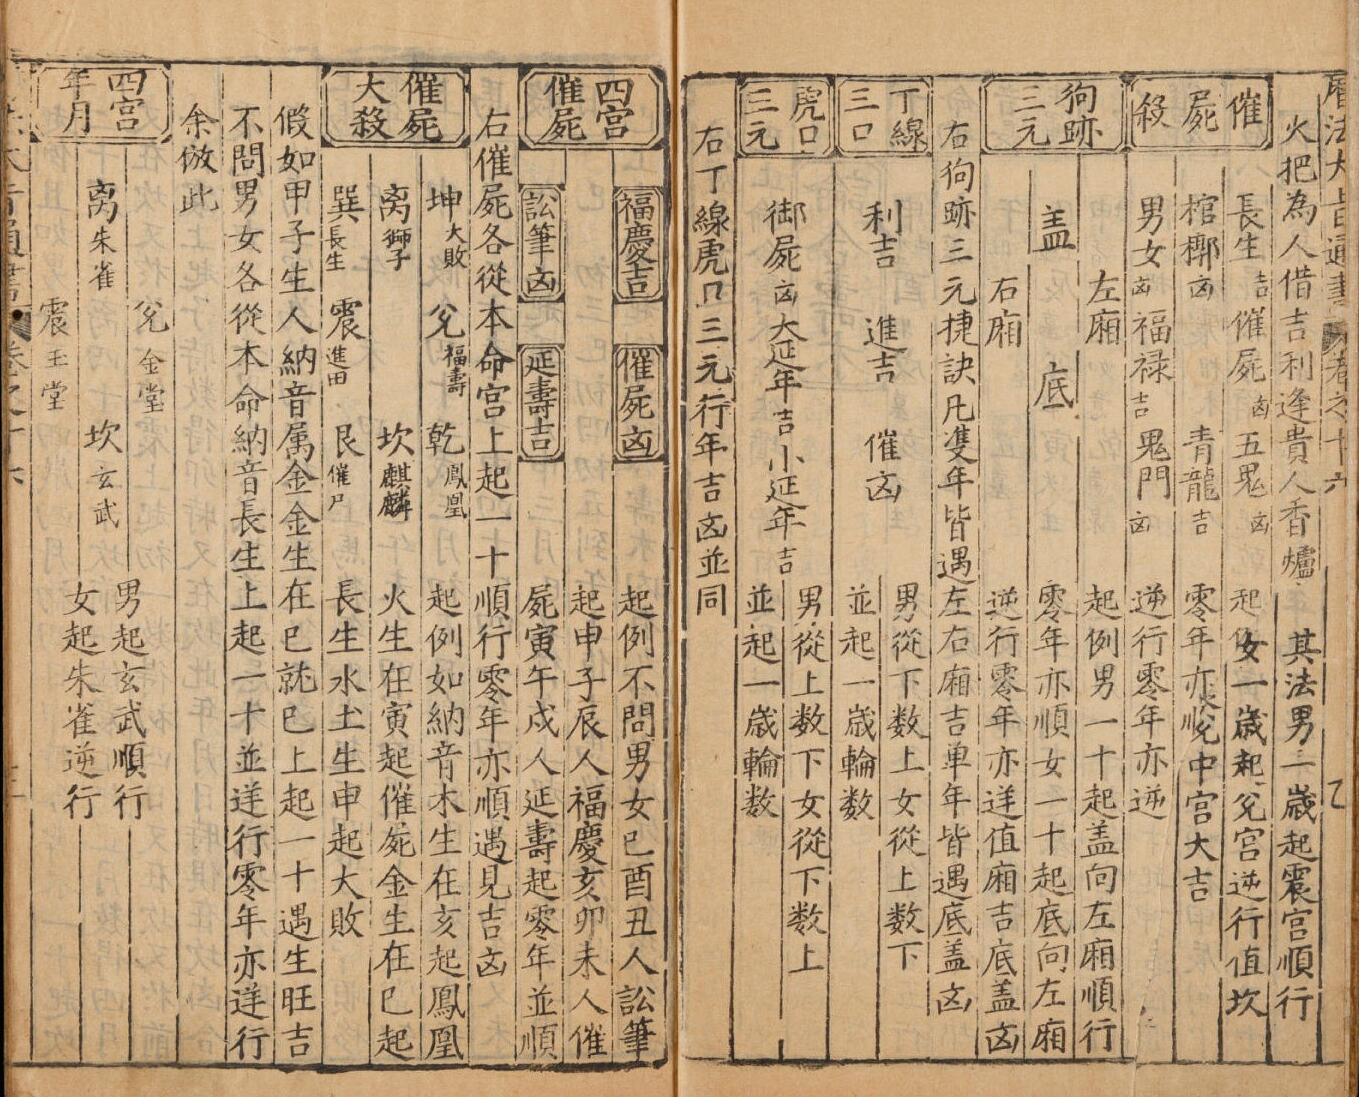 曆法大旨通書 卷之十六 七
火把為人借吉利逢貴人香爐 其法男一歲起震宮順行
催屍殺
長生吉 催屍凶 五鬼凶 女一歲起兌宮逆行值坎
棺槨凶 青龍吉 零年亦順 中宮大吉
男女凶 福禄吉 鬼門凶 逆行零年亦逆
狗跡三元
左廂 起例男一十起盖向左廂順行
盖 底 零年亦順女一十起底向左廂
右廂 逆行零年亦逆值廂吉底盖凶
右狗跡三元捷訣凡隻年皆遇左右廂吉單年皆遇底盖凶
丁線三口
男從下数上女從上数下
利吉 進吉 催凶
並起一歲輪数
虎口三元
男從上数下女從下数上
御屍凶 大延年吉 小延年吉
並起一歲輪数
右丁線虎口三元行年吉凶並同
四宮催屍
福慶吉 催屍凶 起例不問男女巳酉丑人訟筆
起申子辰人福慶亥卯未人催
訟筆凶 延壽吉 屍寅午戌人延壽起零年並順
右催屍各從本命宮上起一十順行零年亦順遇見吉凶
催屍大殺
坤大敗 兌福壽 乾鳳凰 起例如納音木生在亥起鳳凰
离獅子 坎麒麟 火生在寅起催屍金生在巳起
巽長生 震進田 艮催尸 長生水土生申起大敗
假如甲子生人納音属金金生在巳就巳上起一十遇生旺吉
不問男女各從本命納音長生上起一十並逆行零年亦逆行
余倣此
四宮年月
兌金堂 男起玄武順行
离朱雀 坎玄武 女起朱雀逆行
震玉堂